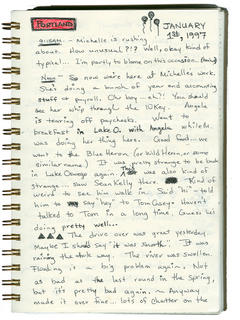 PORTLAND
JANUARY
13th, 1997
9:15am - Michelle is rushing
about. How unusual?!? Well, okay kind of
typical... I'm partly to blame on this occasion.
Noon - So now we're at Michelle's work.
She's doing a bunch of year end accounting
stuff & payroll. Oh boy eh?! You should
see her whip through the 10Key. Angela
is tearing off paychecks. Went to
breakfast in Lake O. with Angela while M.
was doing her thing here. Good food - we
went to the Blue Heron (or Wild Heron, or some
similar name). It was pretty strange to be back
in Lake Oswego again. It was also kind of
strange - saw Sean Kelly there. Kind of
weird to see him walk in. Said "hi" - told
him to say "hey" to Tom Casey. Haven't
talked to Tom in a long time. Guess he's
doing pretty well...
The drive over was great yesterday.
Maybe I should say "it was smooth". It was
raining the whole way. The river was swollen.
Flooding is a big problem again. Not
as bad as the last round in the Spring,
but it's pretty bad again. ~ Anyway
made it over fine... lots of chatter on the